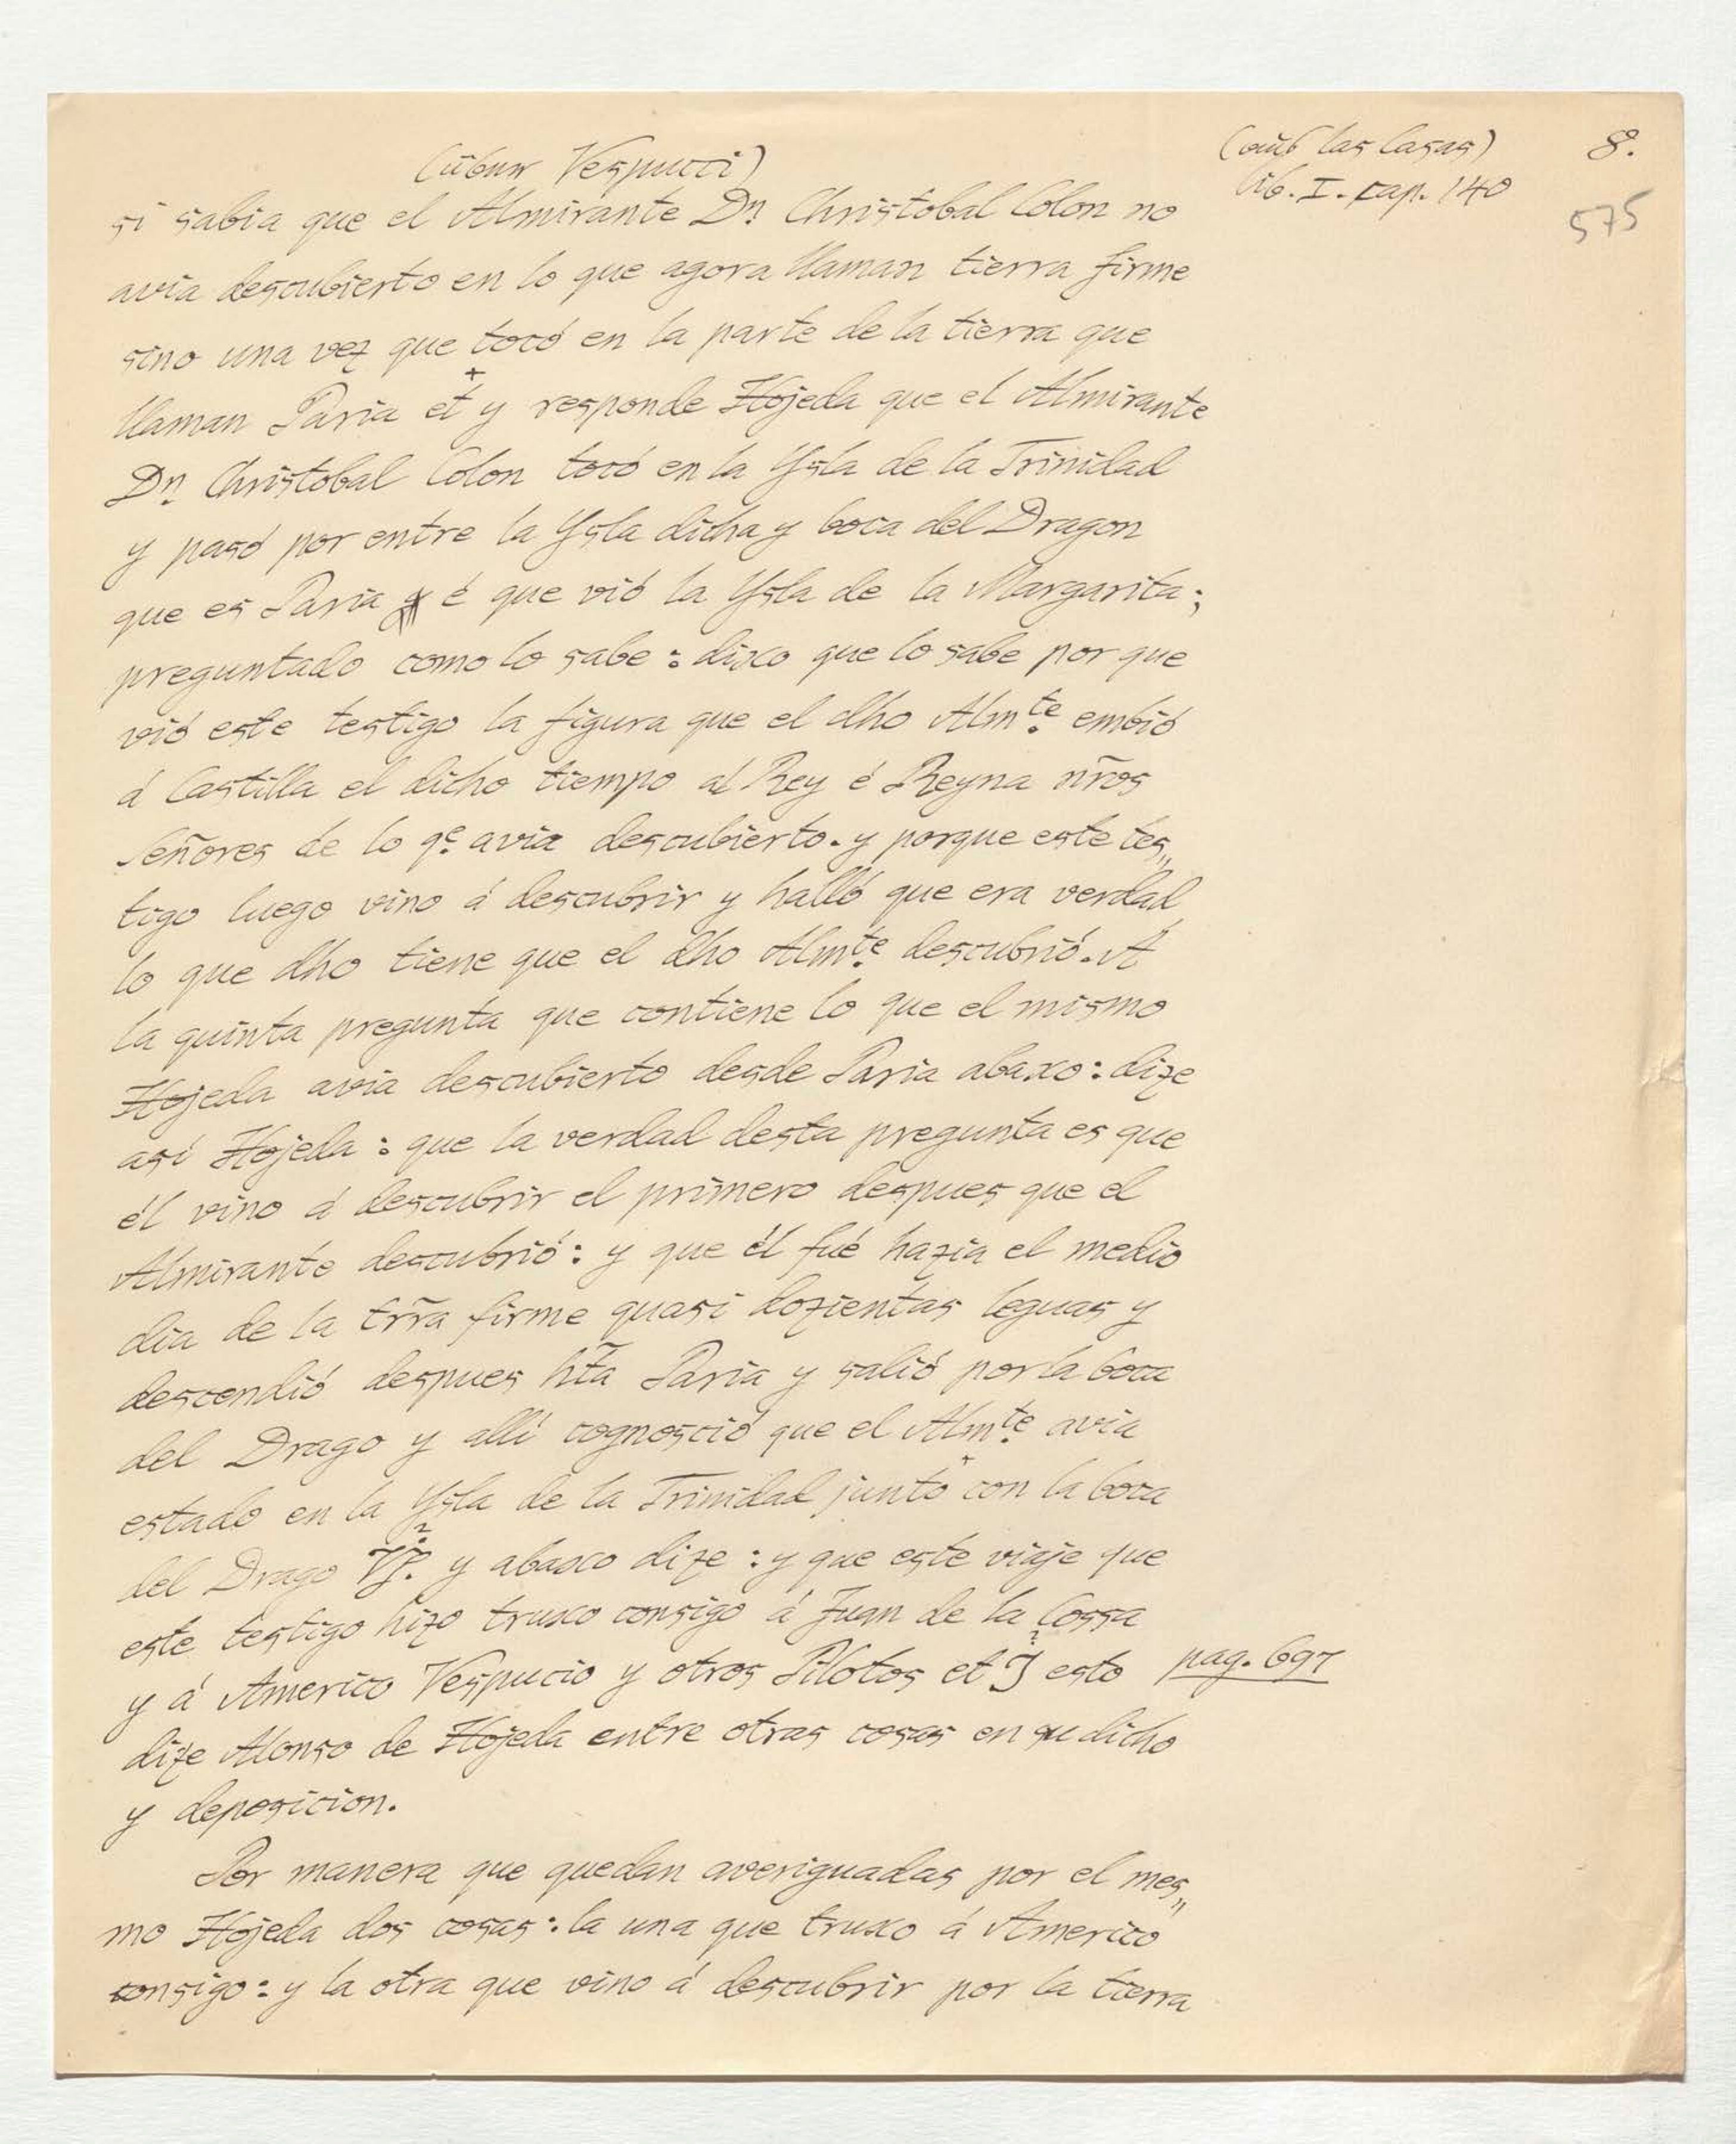 (über Vespucci)
(aus las Casas)
8.
lib. I. cap. 140
575
si sabia que el Almirante Dn Christobal Colon no
avia descubierto en lo que agora llaman tierra firme
sino una vez que tocó en la parte de la tierra que
llaman Paria et + y responde Hojeda que el Almirante
Dn Christobal Colon tocó en la Ysla de la Trinidad
y pasó por entre la Ysla dicha y boca del Dragon
que es Paria é que vió la Ysla de la Margarita;
preguntado como lo sabe: dixo que lo sabe por que
vió este testigo la figura que el dho Almte embió
á Castilla el dicho tiempo al Rey é Reyna nr̃os
Señores de lo qe avia descubierto. y porque este tes„
tigo luego vino á descubrir y halló que era verdad
lo que dho tiene que el dho Almte descubrió. A
la quinta pregunta que contiene lo que el mismo
Hojeda avia descubierto desde Paria abaxo: dize
asi Hojeda: que la verdad desta pregunta es que
él vino á descubrir el primero despues que el
Almirante descubrió: y que él fué hazia el medio
dia de la trr̃a firme quasi dozientas leguas y
descendió despues ht̃a Paria y salió por la boca
del Drago y allí cognosció que el Almte avia
estado en la Ysla de la Trinidad junto con la boca
del Drago y abaxo dize: y que este viaje que
este testigo hizo truxo consigo á Juan de la Cossa
y á Americo Vespucio y otros Pilotos et esto pag. 697
dize Alonso de Hojeda entre otras cosas en su dicho
y deposicion.
Por manera que quedan averiguadas por el mes„
mo Hojeda dos cosas: la una que truxo á Americo
consigo: y la otra que vino á descubrir por la tierra